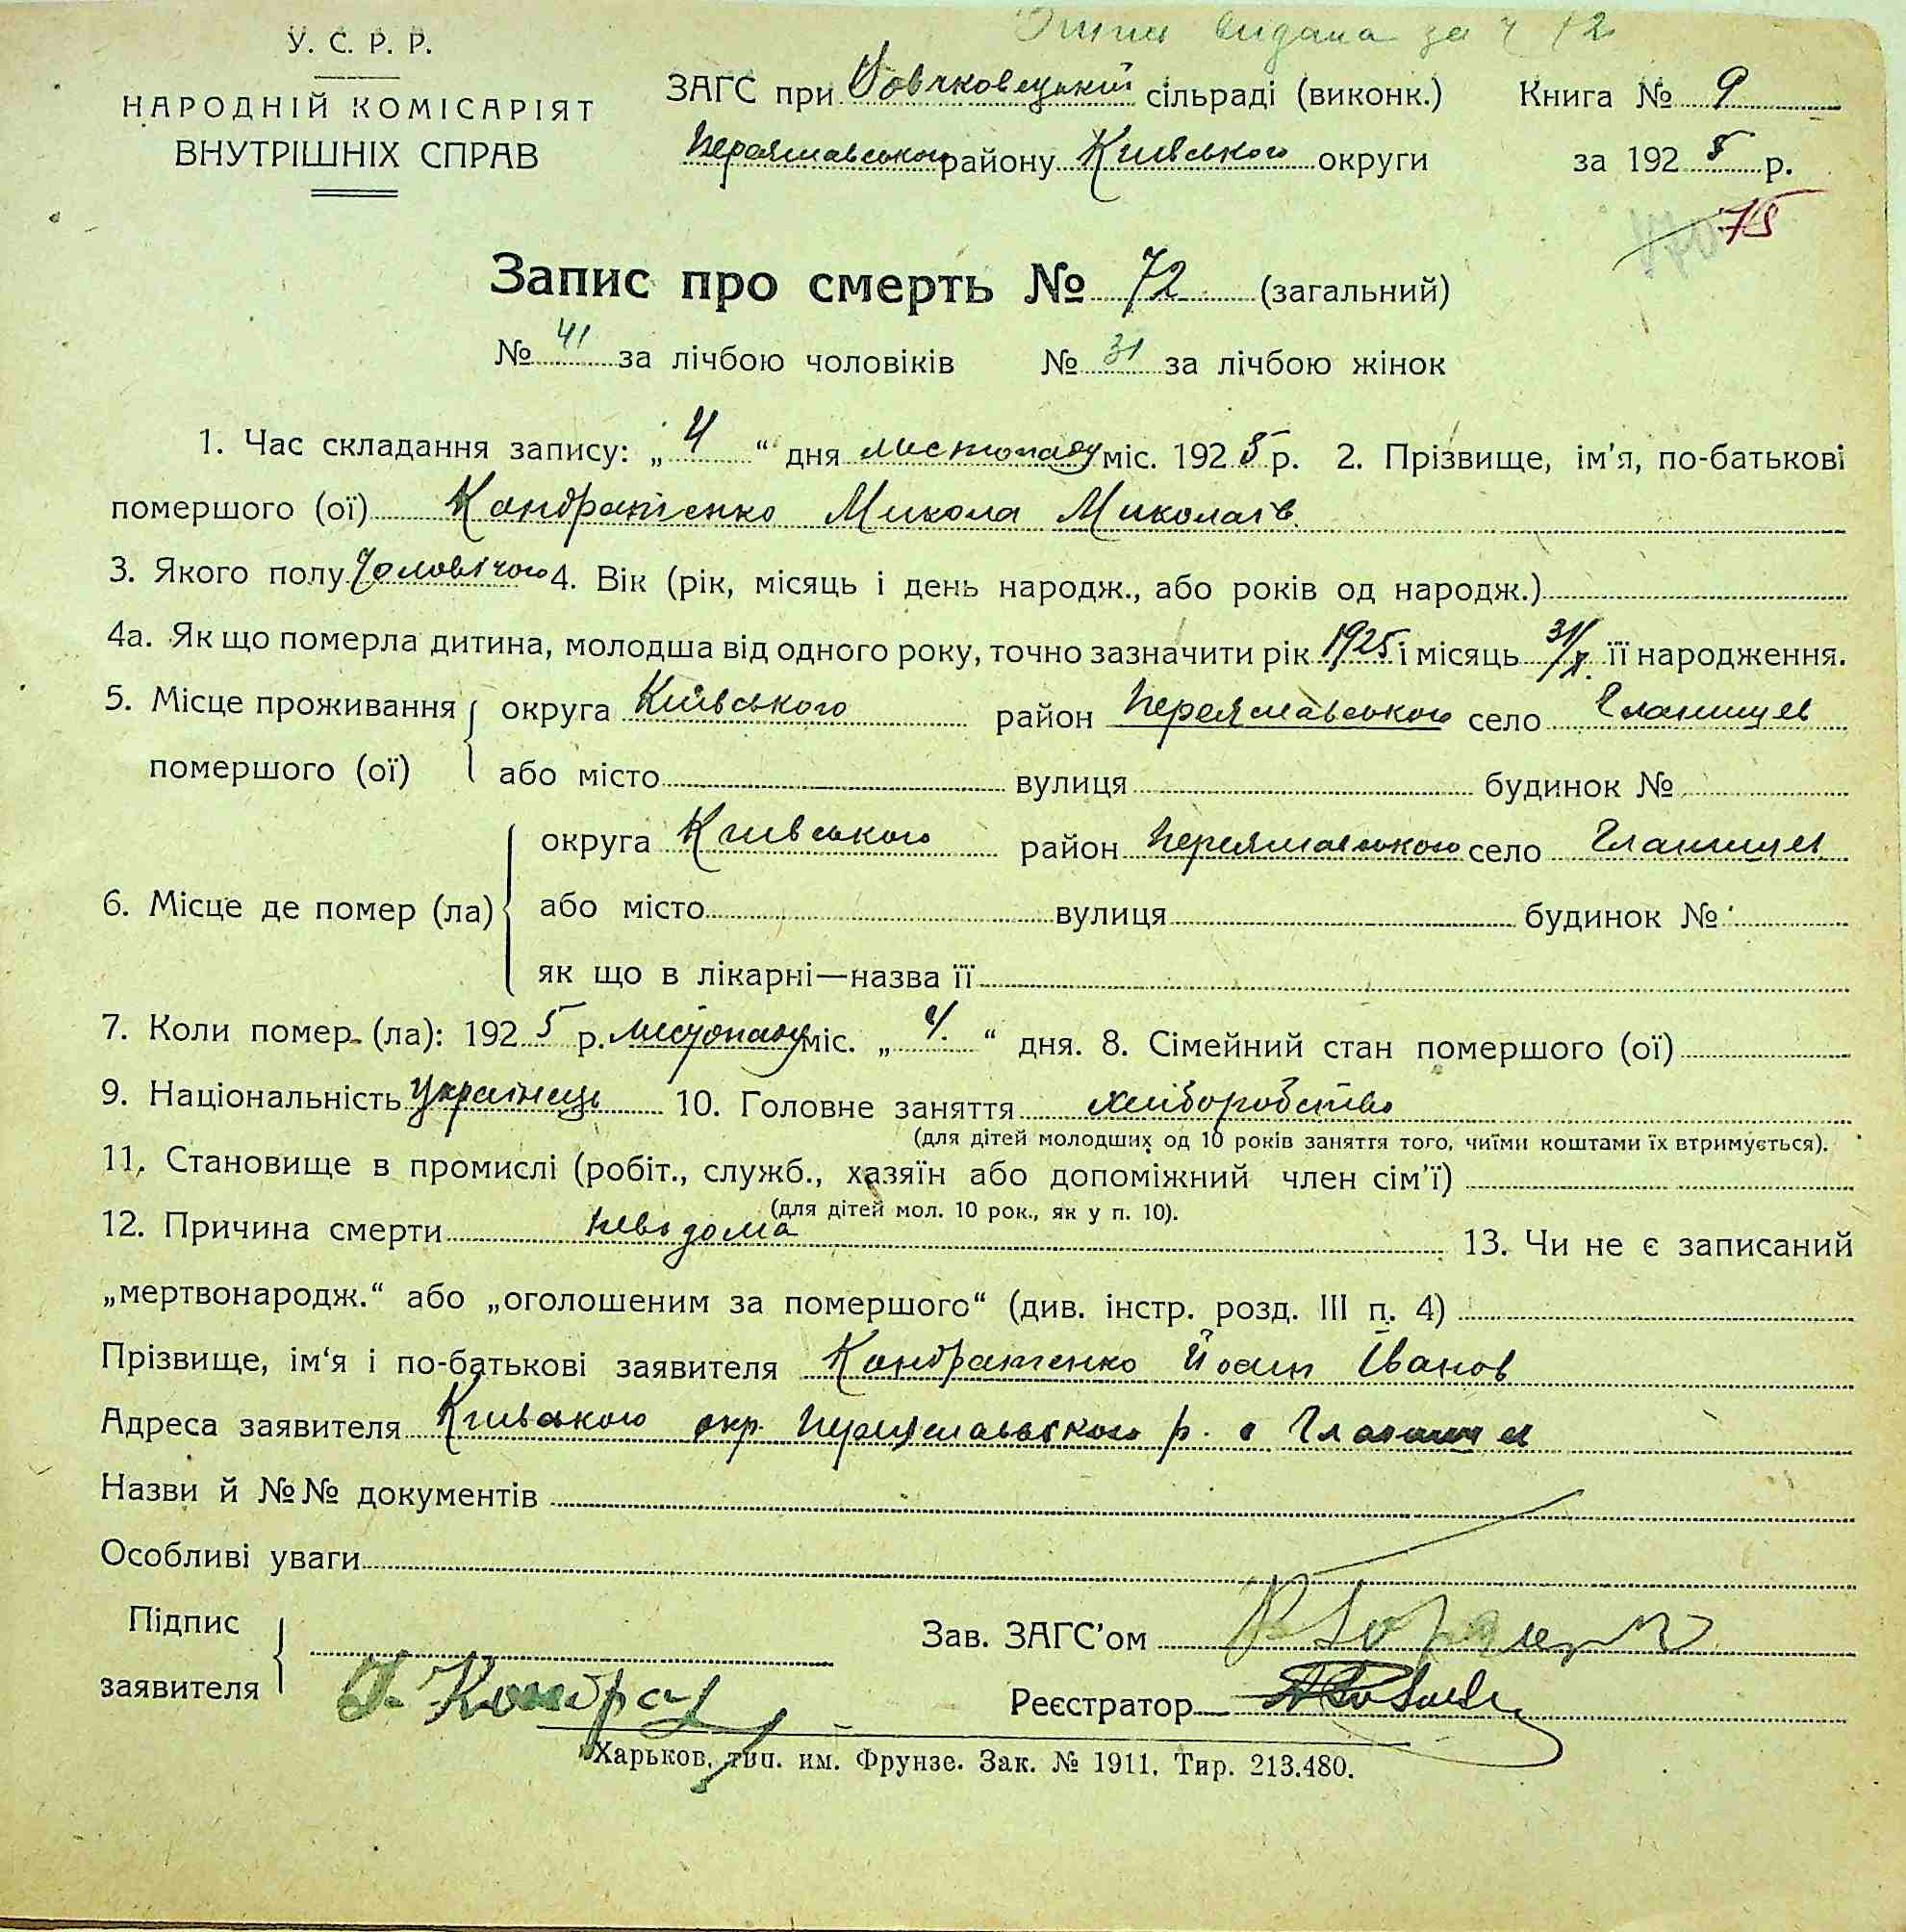 У. С. Р. Р.
НАРОДНІЙ КОМІСАРІЯТ
ВНУТРІШНІХ СПРАВ
видана за ч 72
ЗАГС при Вовчковецькій сільраді (виконк.) Книга № 9
Переяславського району Київського округи за 1925 р.
75
Запис про смерть № 72 (загальний)
№ 41 за лічбою чоловіків № 31 за лічбою жінок
1. Час складання запису: „ 4 “ дня листопаду міс. 1925 р. 2. Прізвище, ім'я, по-батькові
помершого (ої) Кандратенко Микола Миколаїв
3. Якого полу Чоловічого 4. Вік (рік, місяць і день народж., або років од народж.)
4а. Як що померла дитина, молодша від одного року, точно зазначити рік 1925 і місяць 31/X її народження.
5. Місце проживання округа Київського район Переяславського село Гланишев
помершого (ої) або місто вулиця будинок №
округа Київського район Переяславського село Гланишев
6. Місце де помер (ла) або місто вулиця будинок №
як що в лікарні—назва її
7. Коли помер (ла): 1925 р. листопаду міс. „ 4. “ дня. 8. Сімейний стан помершого (ої)
9. Національність Українець 10. Головне заняття хліборобство
(для дітей молодших од 10 років заняття того, чиїми коштами їх втримується).
11. Становище в промислі (робіт., служб., хазяїн або допоміжний член сім'ї)
(для дітей мол. 10 рок., як у п. 10).
12. Причина смерти невідома 13. Чи не є записаний
„мертвонародж.“ або „оголошеним за помершого“ (див. інстр. розд. III п. 4)
Прізвище, ім'я і по-батькові заявителя Кандратенко Йосип Іванов
Адреса заявителя Київского окр. Переяславского р. с Гланишев
Назви й №№ документів
Особливі уваги
Підпис
заявителя
Зав. ЗАГС'ом
Реєстратор
Харьков, тип. им. Фрунзе. Зак. № 1911. Тир. 213.480.